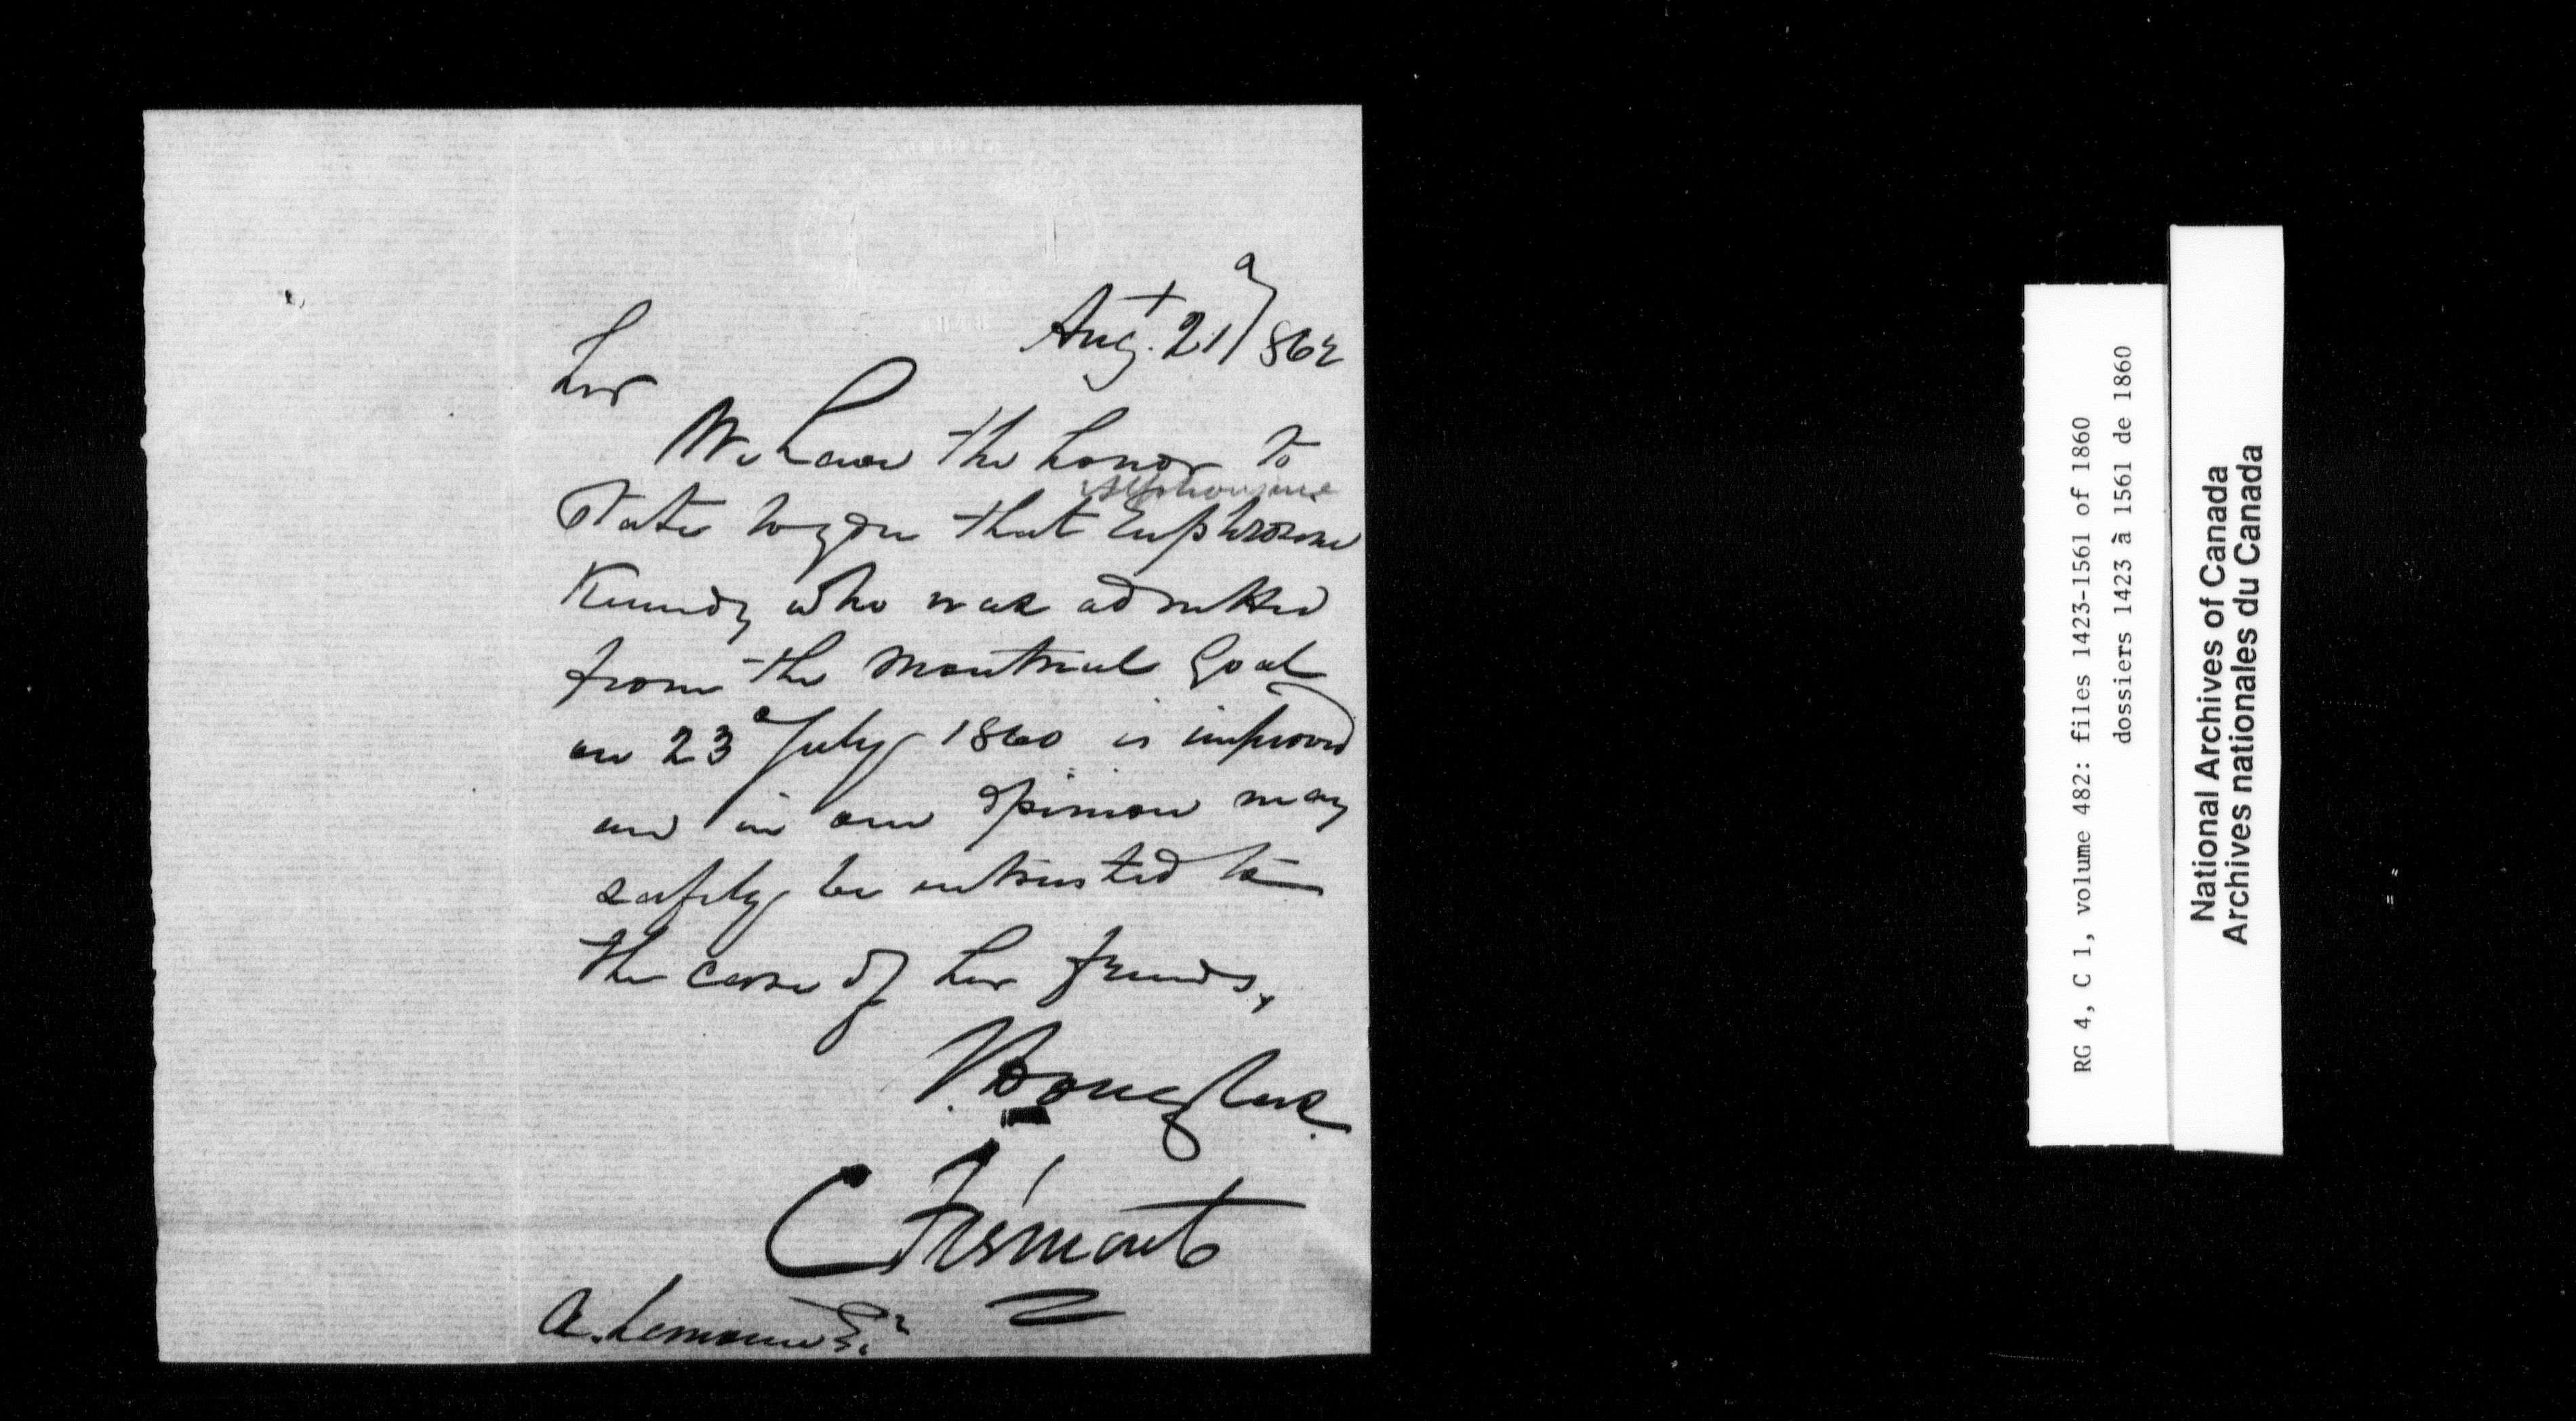 Augt. 21 1862
Sir
We have the honor to
Alphonsine
State to you that Euphrosine
Kennedy who was admitted
from the Montreal Goal
on 23d July 1860 is improved
and in our opinion may
safely be entrusted to
the care of her friends,
J. Douglas.
C Frémont
A. Lemoine Esqr
RG 4, C 1, volume 482: files 1423-1561 of 1860
dossiers 1423 à 1561 de 1860
National Archives of Canada
Archives nationales du Canada